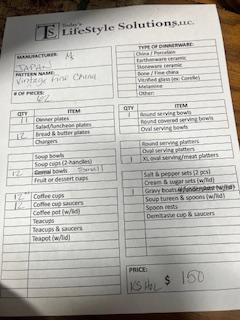 TS Today's
LifeStyle Solutions, LLC.
MANUFACTURER:
JAPAN
PATTERN NAME:
Vintage Fine China
# OF PIECES:
62
TYPE OF DINNERWARE:
China / Porcelain
Earthenware ceramic
Stoneware ceramic
Bone / Fine china
Vitrified glass (ex: Corelle)
Melamine
Other:
QTY ITEM
11 Dinner plates
Salad/luncheon plates
12 Bread & butter plates
Chargers
Soup bowls
Soup cups (2-handles)
12 Cereal bowls Small
Fruit or dessert cups
12 Coffee cups
12 Coffee cup saucers
Coffee pot (w/lid)
Teacups
Teacups & saucers
Teapot (w/lid)
QTY ITEM
1 Round serving bowls
Round covered serving bowls
Oval serving bowls
Round serving platters
Oval serving platters
1 XL oval serving/meat platters
Salt & pepper sets (2 pcs)
Cream & sugar sets (w/lid)
1 Gravy boats w/underplate (w/lid)
Soup tureen & spoons (w/lid)
Spoon rests
Demitasse cup & saucers
PRICE:
$ 150